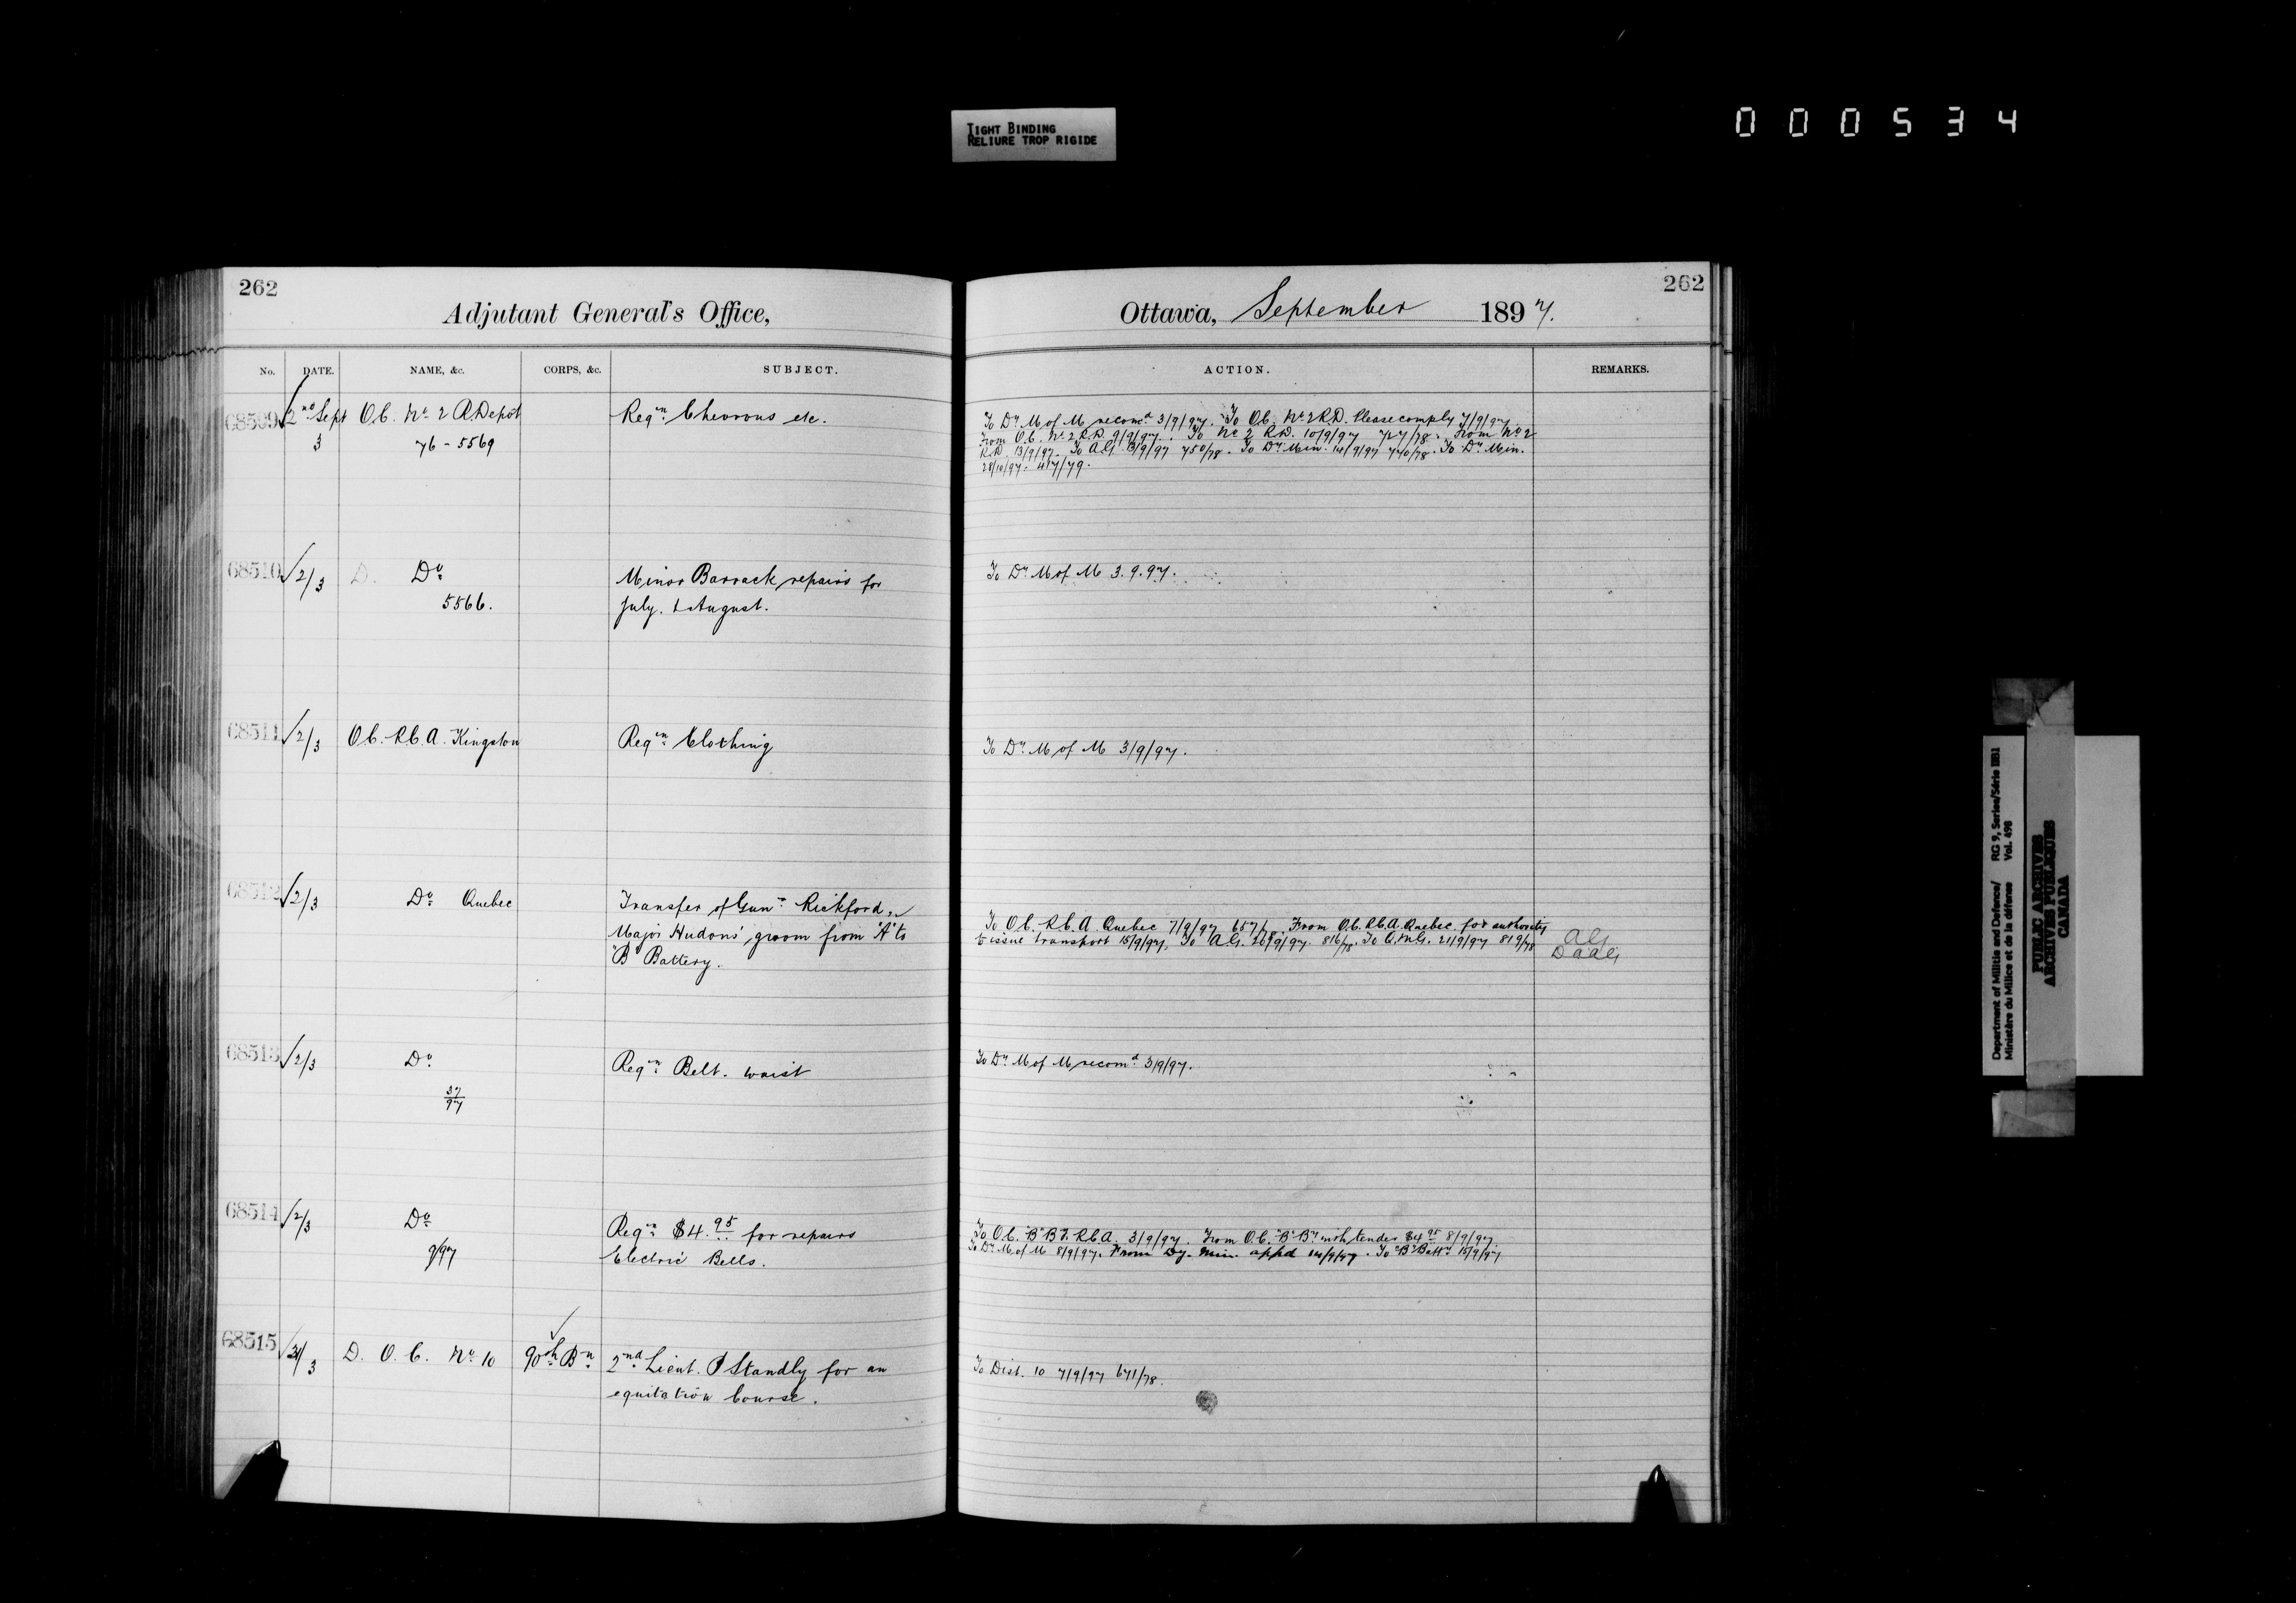 TIGHT BINDING
RELIURE TROP RIGIDE
000534
262
Adjutant General's Office,
No. DATE. NAME, &c. CORPS, &c. SUBJECT.
68509 2nd Sept O.C. No 2 R. Depot Reqn. Chevrons etc.
3 76 - 5569
68510 2/3 Do Minor Barrack repairs for
5566. July. & August.
68511 2/3 O.C. R.C.A. Kingston Reqn Clothing
68512 2/3 Do Quebec Transfer of Gunr Rickford,
Major Hudons', groom from "A" to
"B" Battery.
68513 2/3 Do Reqn Belt. waist
37/97
68514 2/3 Do Reqn $4.95 for repairs
9/97 Electric Bells.
68515 3 D. O. C. No 10 90th Bn 2nd Lieut. P Standly for an
equitation Course.
262
Ottawa, September 1897.
ACTION. REMARKS.
To Dy. M of M recomd 3/9/97. To O.C. No 2 R.D. Please comply 7/9/97
From O.C. No 2 R.D. 9/9/97. To No 2 R.D. 10/9/97 727/78. From No 2
R.D. 13/9/97. To A.G. 13/9/97 750/78. To Dy Min. 14/9/97 770/78. To Dy Min.
28/10/97. 417/79.
To Dy. M of M 3.9.97.
To Dy. M of M 3/9/97.
To O.C. R.C.A. Quebec 7/9/97 657/78. From O.C. R.C.A. Quebec for authority
to issue transport 15/9/97. To A.G. 20/9/97. 816/78. To Q.M.G. 21/9/97 819/78
AG
DAAG
To Dy. M of M recomd 3/9/97.
To O.C. "B" By. R.C.A. 3/9/97. From O.C. "B" By. with tender $4.95 8/9/97.
To Dy. M of M 8/9/97. From Dy. Min. appd 14/9/97. To "B" Batty 15/9/97
To Dist. 10 7/9/97 671/78.
Department of Militia and Defence/ RG 9, Series/Série IIB1
Ministère du Milice et de la défense Vol. 498
PUBLIC ARCHIVES
ARCHIVES PUBLIQUES
CANADA